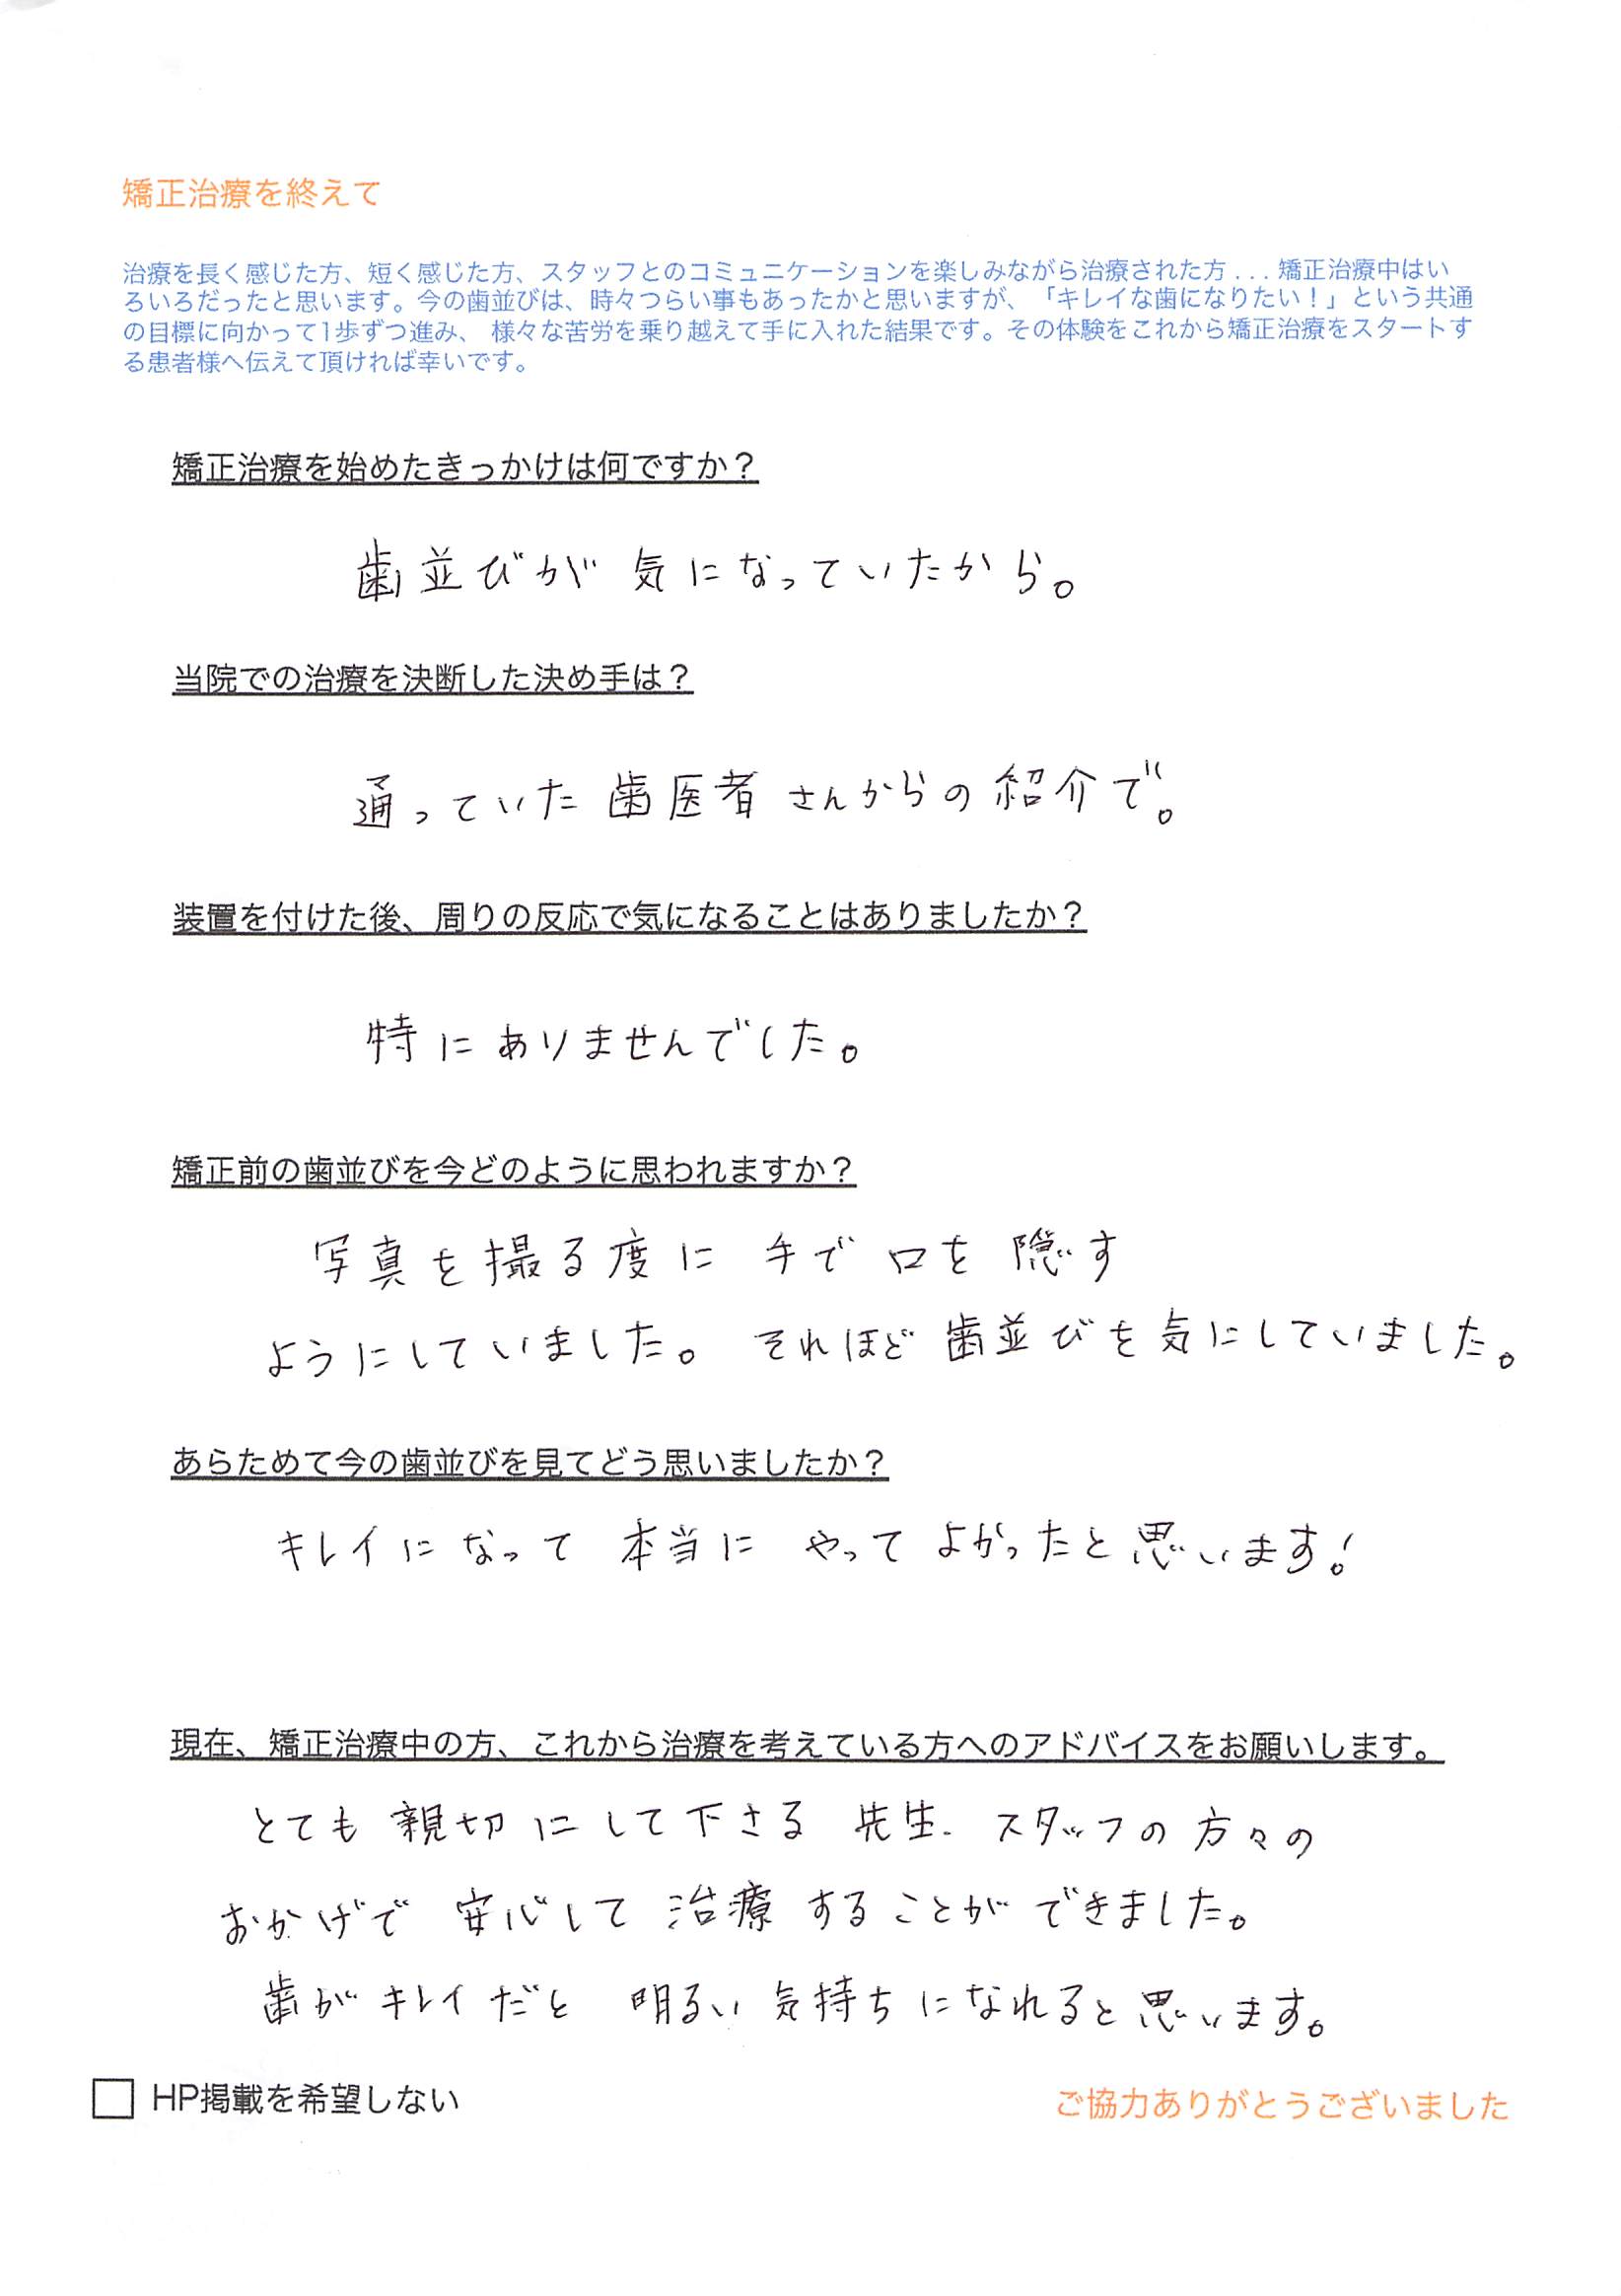 矯正治療を終えて
治療を長く感じた方、短く感じた方、スタッフとのコミュニケーションを楽しみながら治療された方...矯正治療中はい
ろいろだったと思います。今の歯並びは、時々つらい事もあったかと思いますが、「キレイな歯になりたい！」という共通
の目標に向かって1歩ずつ進み、様々な苦労を乗り越えて手に入れた結果です。その体験をこれから矯正治療をスタートす
る患者様へ伝えて頂ければ幸いです。
矯正治療を始めたきっかけは何ですか？
歯並びが気になっていたから。
当院での治療を決断した決め手は？
通っていた歯医者さんからの紹介で。
装置を付けた後、周りの反応で気になることはありましたか？
特にありませんでした。
矯正前の歯並びを今どのように思われますか？
写真を撮る度に手で口を隠す
ようにしていました。それほど歯並びを気にしていました。
あらためて今の歯並びを見てどう思いましたか？
キレイになって本当にやってよかったと思います！
現在、矯正治療中の方、これから治療を考えている方へのアドバイスをお願いします。
とても親切にして下さる先生、スタッフの方々の
おかげで安心して治療することができました。
歯がキレイだと明るい気持ちになれると思います。
HP掲載を希望しない
ご協力ありがとうございました